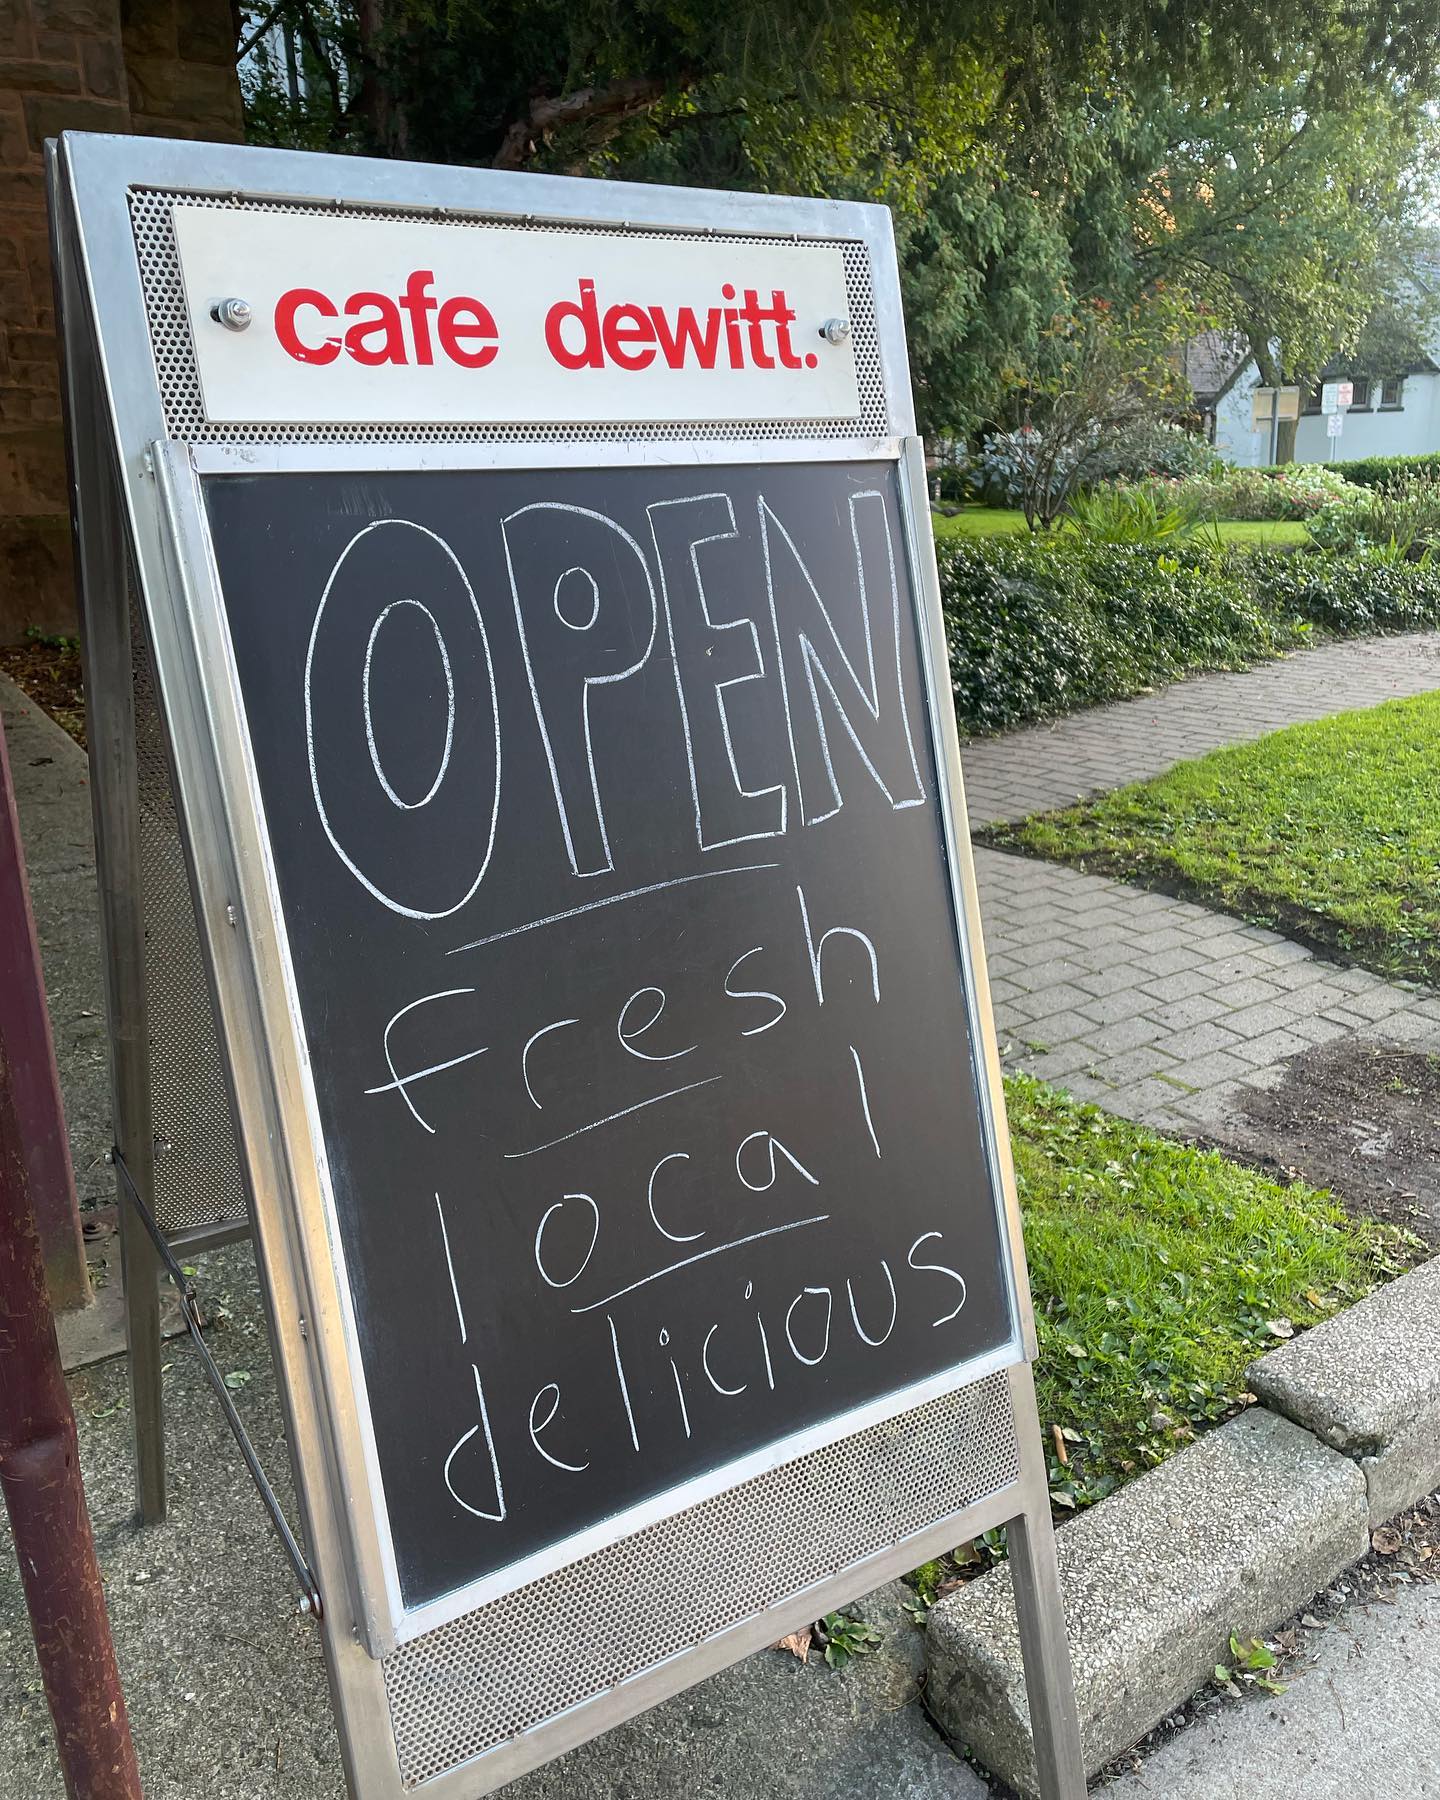 cafe dewitt.
OPEN
fresh
local
delicious